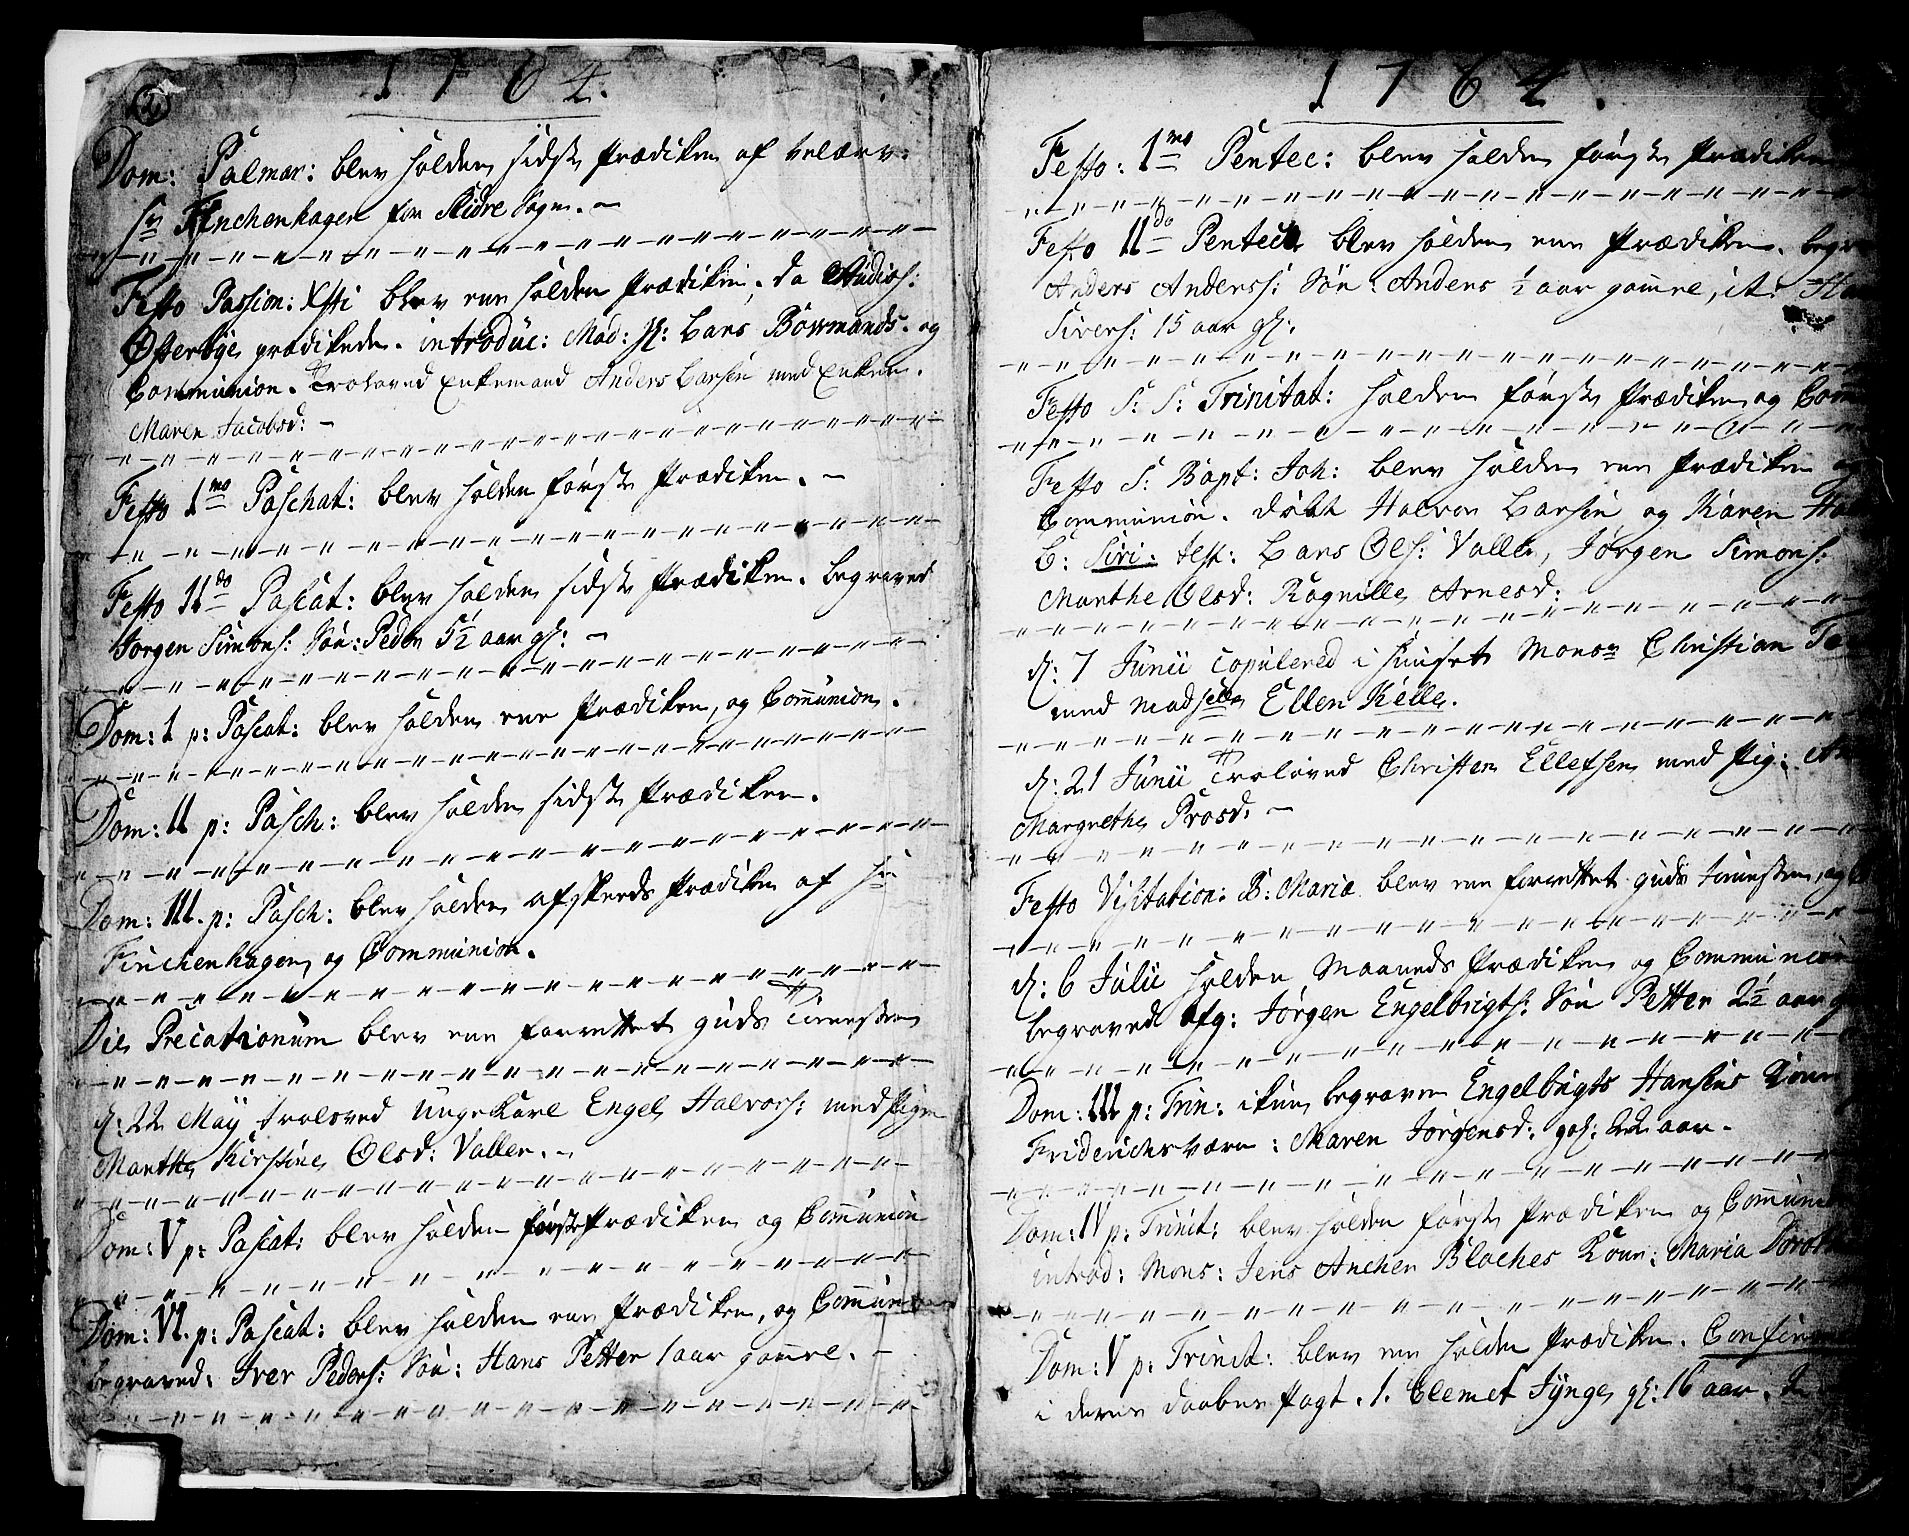 2
1764.
Dom: Palmar: blev holden sidste Prædiken af velærv:
Hr Finchenhagen for Skidre Sogn. –
Festo Passion: Xsti blev een holden Prædiken, da Studios:
Østerbye prædikede. introduc: Mad: Hr: Lars Bowmands. og
Communion. Troloved Enkemand Anders Larsen med Enken.
Maren Jacobsd: –
Festo 1mo Paschat: blev holden første Prædiken. –
Festo IIdo Pascat: blev holden sidste Prædiken. begraved
Jørgen Simons: Søn: Peder 5½ aar gl: –
Dom: I p: Pascat: blev holden een Prædiken, og Communion.
Dom: II p: Pasch: blev holden sidste Prædiken.
Dom: III. p: Pasch: blev holden afskeeds Prædiken af Hr
Finchenhagen, og Communion.
Die Precationum blev een forrettet guds Tienesten
d: 22 Maÿ troloved Unge Karl Engel Halvors: med Pigen
Marthe Kirstine Olsd: Vallen. –
Dom: V p: Pascat: blev holden første Prædiken og Communion
Dom: VI. p: Pascat: blev holden een Prædiken, og Communion
begraved. Iver Peders: Søn: Hans Petter 1 aar gamle. –
1764.
Festo: 1mo Pentec: blev holden første Prædiken
Festo IIdo Pentec: blev holden een Prædiken. begr
Anders Anderss: Søn: Anders ½ aar gamle, it:
Sivers: 15 aar gl:.
Festo S: S: Trinitat: holden første Prædiken og Comm
Festo S: Bapt: Joh: blev holden een Prædiken og
Communion. døbt Halvor Larsen og Karen
B: Siri. test: Lars Ols: Valle, Jørgen Simons:
Marthe Olsd: Ragnille Arnesd:
d: 7 Junii Copulered i huuset Monsr Christian
med Madselle Ellen Kelle.
d: 21 Junii Troloved Christen Ellefsen med Pig:
Margrethe Prosd. –
Festo Visitation: B: Mariæ blev een forrettet guds tienesten, og
d: 6 Julii holden Maaneds Prædiken og Communion
begraved afg: Jørgen Engelbrigts: Søn Petter 2½ aar
Dom: III p: Trin: ikun begraven Engelbrigts Hansens Kone
Friderichsværn: Maren Jørgensd: gl: 22 aar.
Dom: IV p: Trinit: blev holden første Prædiken og Commun
introd: Mons: Jens Anchen Bloches Kone: Maria Doroth
Dom: V p: Trinit: blev een holden Prædiken. Confirm
i deres daabes Pagt. 1. Clemet Jÿnge gl: 16 aar.